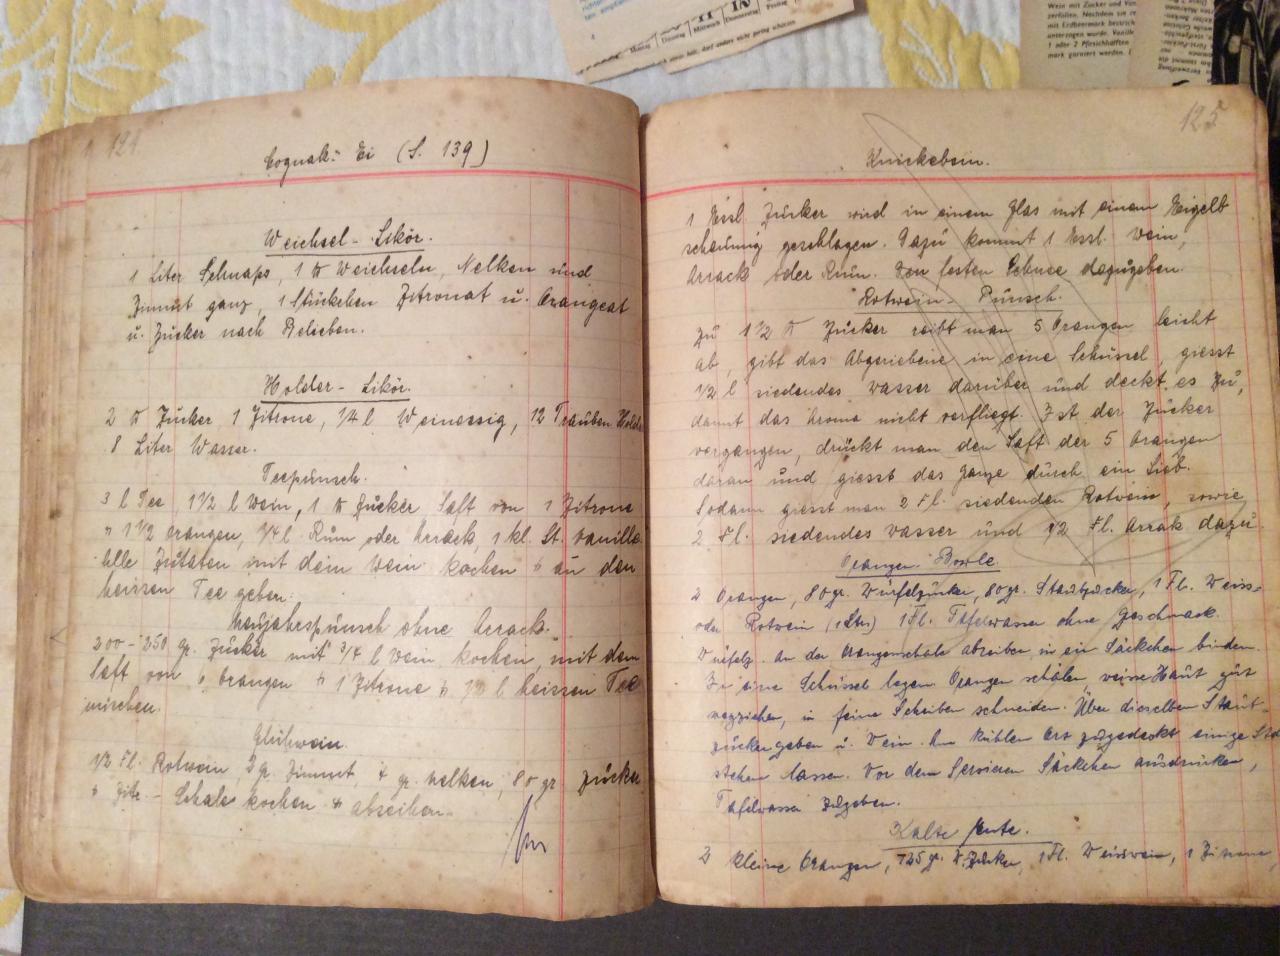 124
Cognak-Ei (S. 139)
Weichsel-Likör.
1 Liter Schnaps, 1 ℔ Weichseln, Nelken und
Zimmt ganz, 1 Stückchen Zitronat u. Orangeat
u. Zucker nach Belieben.
Holder-Likör.
2 ℔ Zucker 1 Zitrone, 1/4 l Weinessig, 12 Trauben Holder
8 Liter Wasser.
Teepunsch.
3 l Tee, 1 1/2 l Wein, 1 ℔ Zucker Saft von 1 Zitrone
1 1/2 Orangen, 1/4 l Rum oder Arrack, 1 kl. St. Vanille
Alle Zutaten mit dem Wein kochen & an den
heissen Tee geben.
Neujahrspunsch ohne Arrack.
200-250 gr. Zucker mit 3/4 l Wein kochen, mit dem
Saft von 6 Orangen & 1 Zitrone & l heissen Tee
mischen.
Glühwein.
1/2 Fl. Rotwein gr. Zimmt, gr. Nelken, 80 gr Zucker
& Zitr.-Schale kochen & abseihen.
125
Knickebein.
1 Essl. Zucker wird in einem Glas mit einem Eigelb
schaumig geschlagen. Dazu kommt 1 Essl. Wein,
Arrack oder Rum. Den festen Schnee dazugeben.
Rotwein-Punsch.
Zu 1 1/2 ℔ Zucker reibt man 5 Orangen leicht
ab, gibt das Abgeriebene in eine Schüssel, giesst
1/2 l siedendes Wasser darüber und deckt es zu,
damit das Aroma nicht verfliegt. Ist der Zucker
vergangen, drückt man den Saft der 5 Orangen
daran und giesst das Ganze durch ein Sieb.
Sodann giesst man 2 Fl. siedenden Rotwein, sowie
2 Fl. siedendes Wasser und 1/2 Fl. Arrak dazu.
Orangen-Bowle.
2 Orangen, 80 gr. Würfelzucker, 80 gr. Staubzucker, 1 Fl. Weiss-
oder Rotwein (1 Ltr.) 1 Fl. Tafelwasser ohne Geschmack.
Würfelz. an der Orangenschale abreiben, in ein Säckchen binden.
In eine Schüssel legen. Orangen schälen weisse Haut gut
wegziehen, in feine Scheiben schneiden. Über dieselben Staub-
zucker geben u. Wein. Am kühlen Ort zugedeckt einige Std
stehen lassen. Vor dem Servieren Säckchen ausdrücken,
Tafelwasser zugeben.
Kalte Ente.
2 kleine Orangen, 125 gr. Zucker, 1 Fl. Weisswein, 1 Zitrone,
Montag Dienstag Mittwoch Donnerstag Freitag
Wein mit Zucker und
zerfallen. Nachdem sie
mit Erdbeermark bestrich
unterzogen wurde. Vanille
1 oder 2 Pfirsichhälften
mark garniert werden.